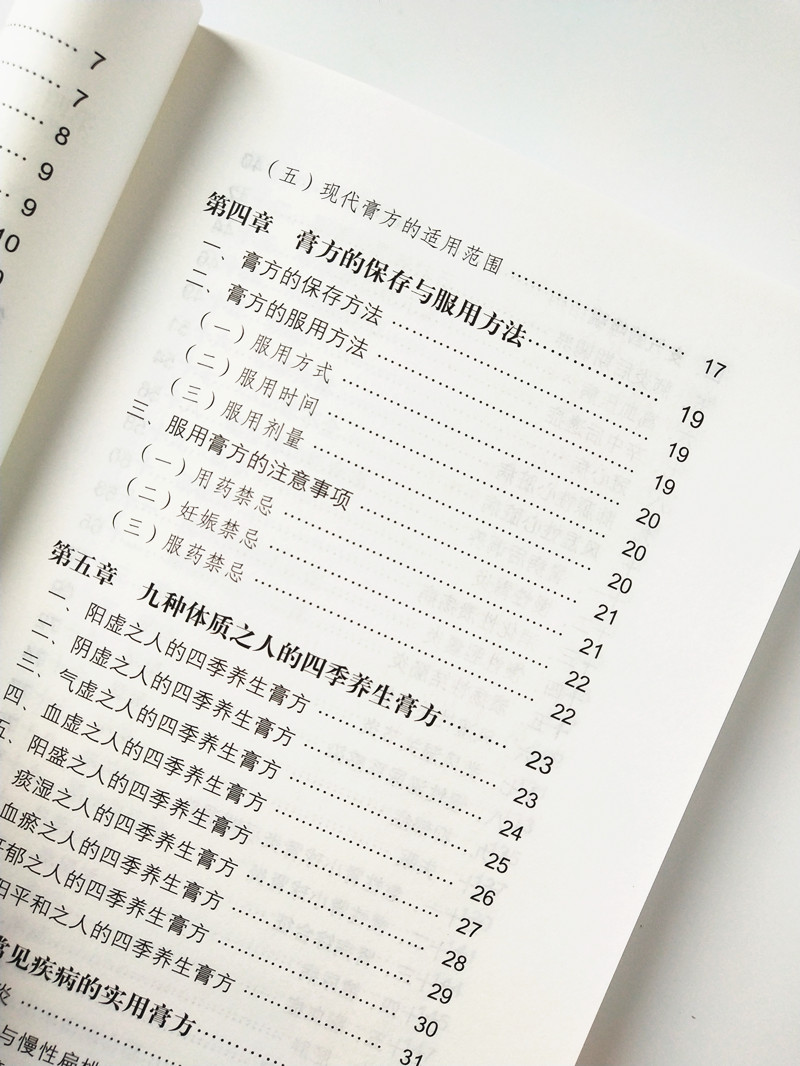 7
7
8
9
9
10
（五）现代膏方的适用范围 …… 17
第四章 膏方的保存与服用方法 …… 19
一、膏方的保存方法 …… 19
二、膏方的服用方法 …… 19
（一）服用方式 …… 20
（二）服用时间 …… 20
（三）服用剂量 …… 20
三、服用膏方的注意事项 …… 21
（一）用药禁忌 …… 21
（二）妊娠禁忌 …… 22
（三）服药禁忌 …… 22
第五章 九种体质之人的四季养生膏方 …… 23
一、阳虚之人的四季养生膏方 …… 23
二、阴虚之人的四季养生膏方 …… 24
三、气虚之人的四季养生膏方 …… 25
四、血虚之人的四季养生膏方 …… 26
五、阳盛之人的四季养生膏方 …… 27
痰湿之人的四季养生膏方 …… 28
血瘀之人的四季养生膏方 …… 29
郁之人的四季养生膏方 …… 30
阳平和之人的四季养生膏方 …… 31
常见疾病的实用膏方 ……
炎 ……
与慢性扁桃